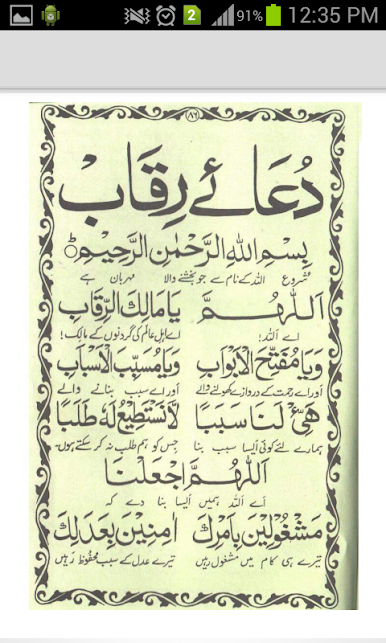 2 91% 12:35 PM
۷۸۶
دُعَائے رِقَاب
بِسْمِ اللهِ الرَّحْمٰنِ الرَّحِيْمِ
شروع اللہ کے نام سے جو بخشنے والا مہربان ہے
اَللّٰهُمَّ يَا مَالِكَ الرِّقَابِ
اے اللہ! اے اہل عالم کی گردنوں کے مالک!
وَيَا مُفَتِّحَ الْاَبْوَابِ وَيَا مُسَبِّبَ الْاَسْبَابِ
اور اے رحمت کے دروازے کھولنے والے اور اے سبب بنانے والے
هَيِّئْ لَنَا سَبَبًا لَا نَسْتَطِيْعُ لَهٗ طَلَبًا
ہمارے لئے کوئی ایسا سبب بنا جس کو ہم طلب نہ کر سکتے ہوں۔
اَللّٰهُمَّ اجْعَلْنَا
اے اللہ ہمیں ایسا بنا دے کہ
مَشْغُوْلِيْنَ بِاَمْرِكَ اٰمِنِيْنَ بِعَدْلِكَ
تیرے ہی کام میں مشغول رہیں تیرے عدل کے سبب محفوظ رہیں